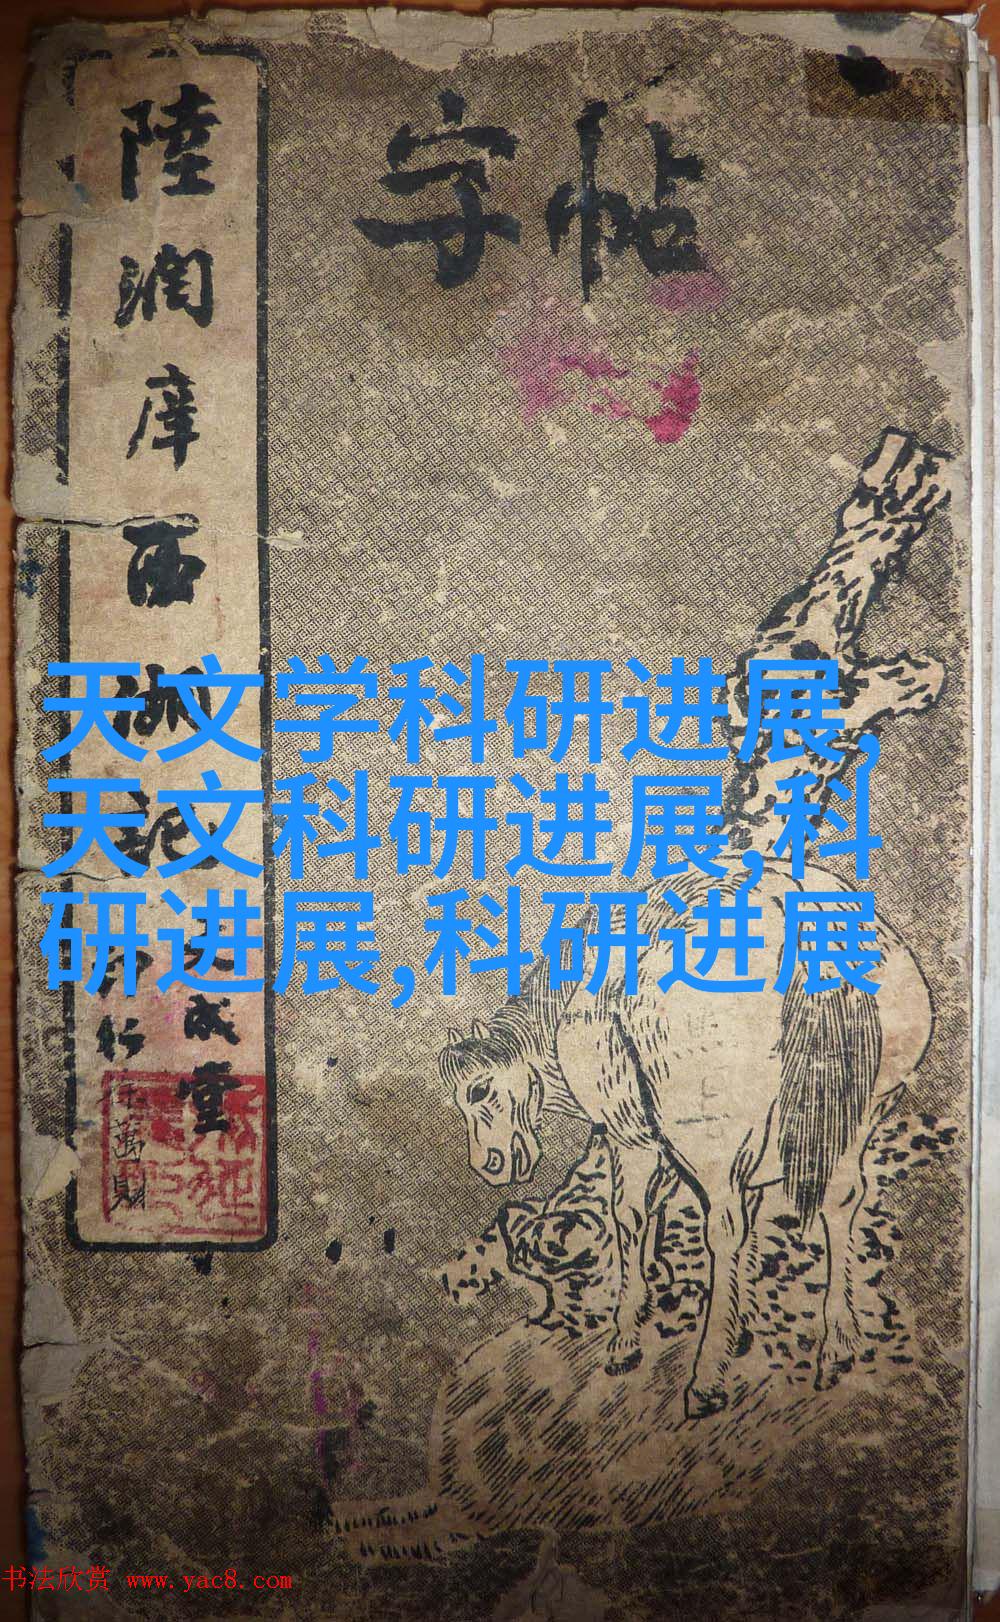 字帖
陸潤庠西湖記
文成堂
印行
徐萬財
天文学科研进展,
天文科研进展,科
研进展,科研进展
书法欣赏 www.yac8.com